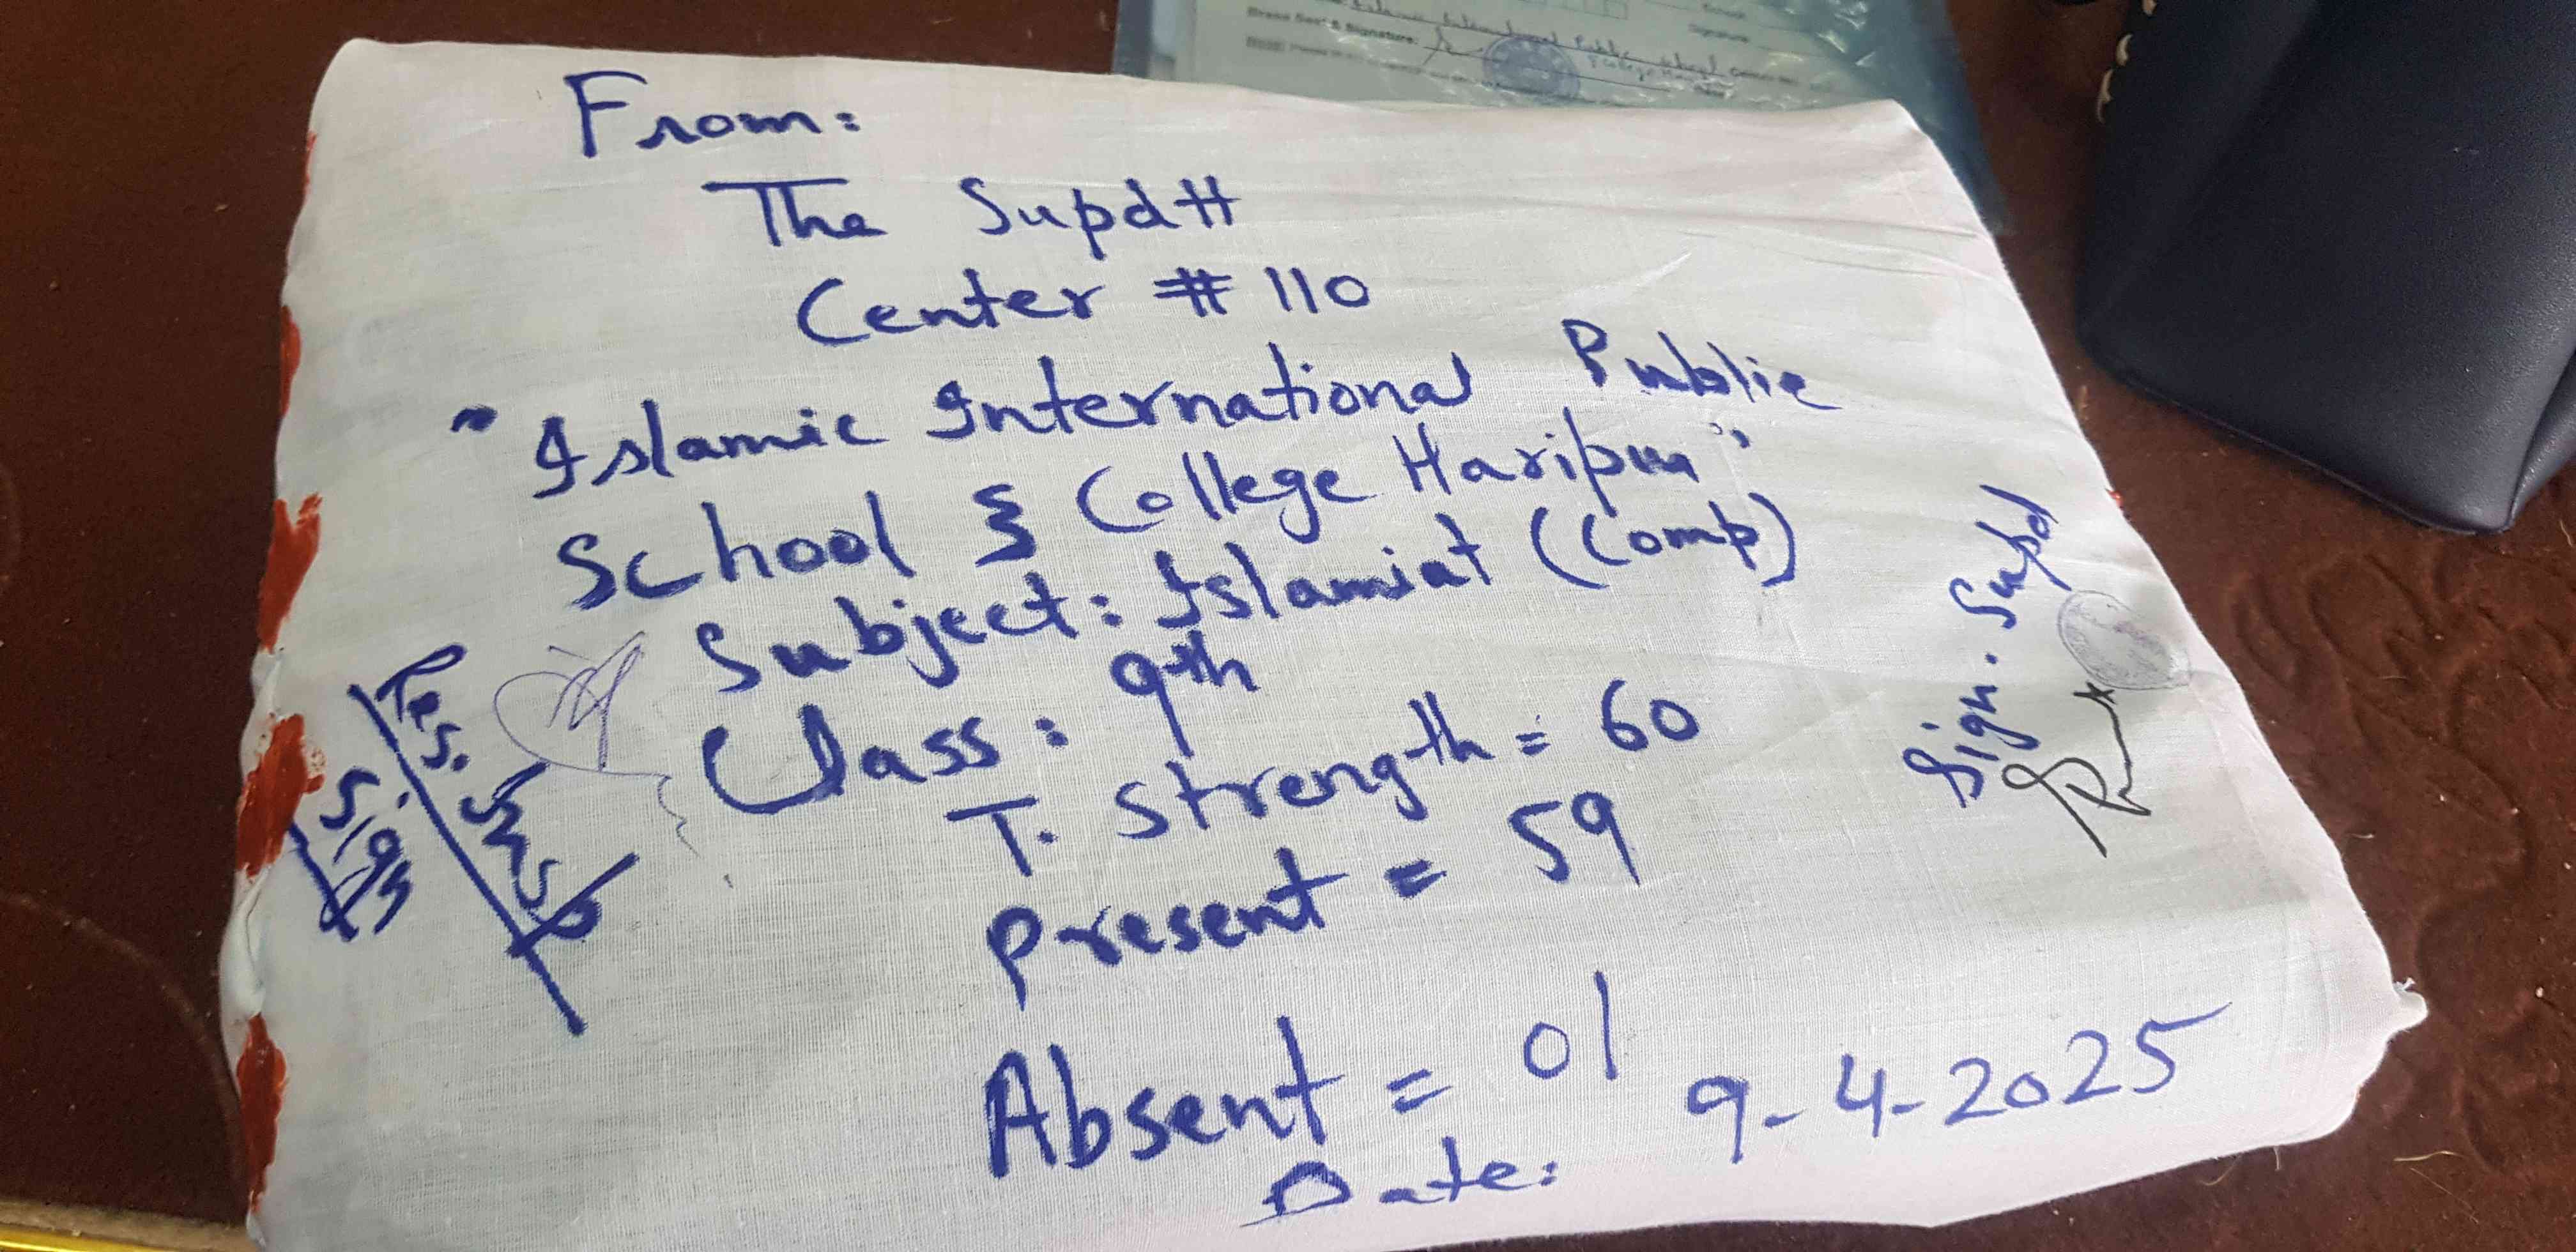 From:
The Supdtt
Center # 110
"Islamic International Public
School & College Haripur"
Subject: Islamiat (Comp)
Class: 9th
T. Strength = 60
Present = 59
Absent = 01
Date: 9-4-2025
Sign. Supd
Res.
Sign
Brass Seal & Signature:
Islamic International Public School
Signature